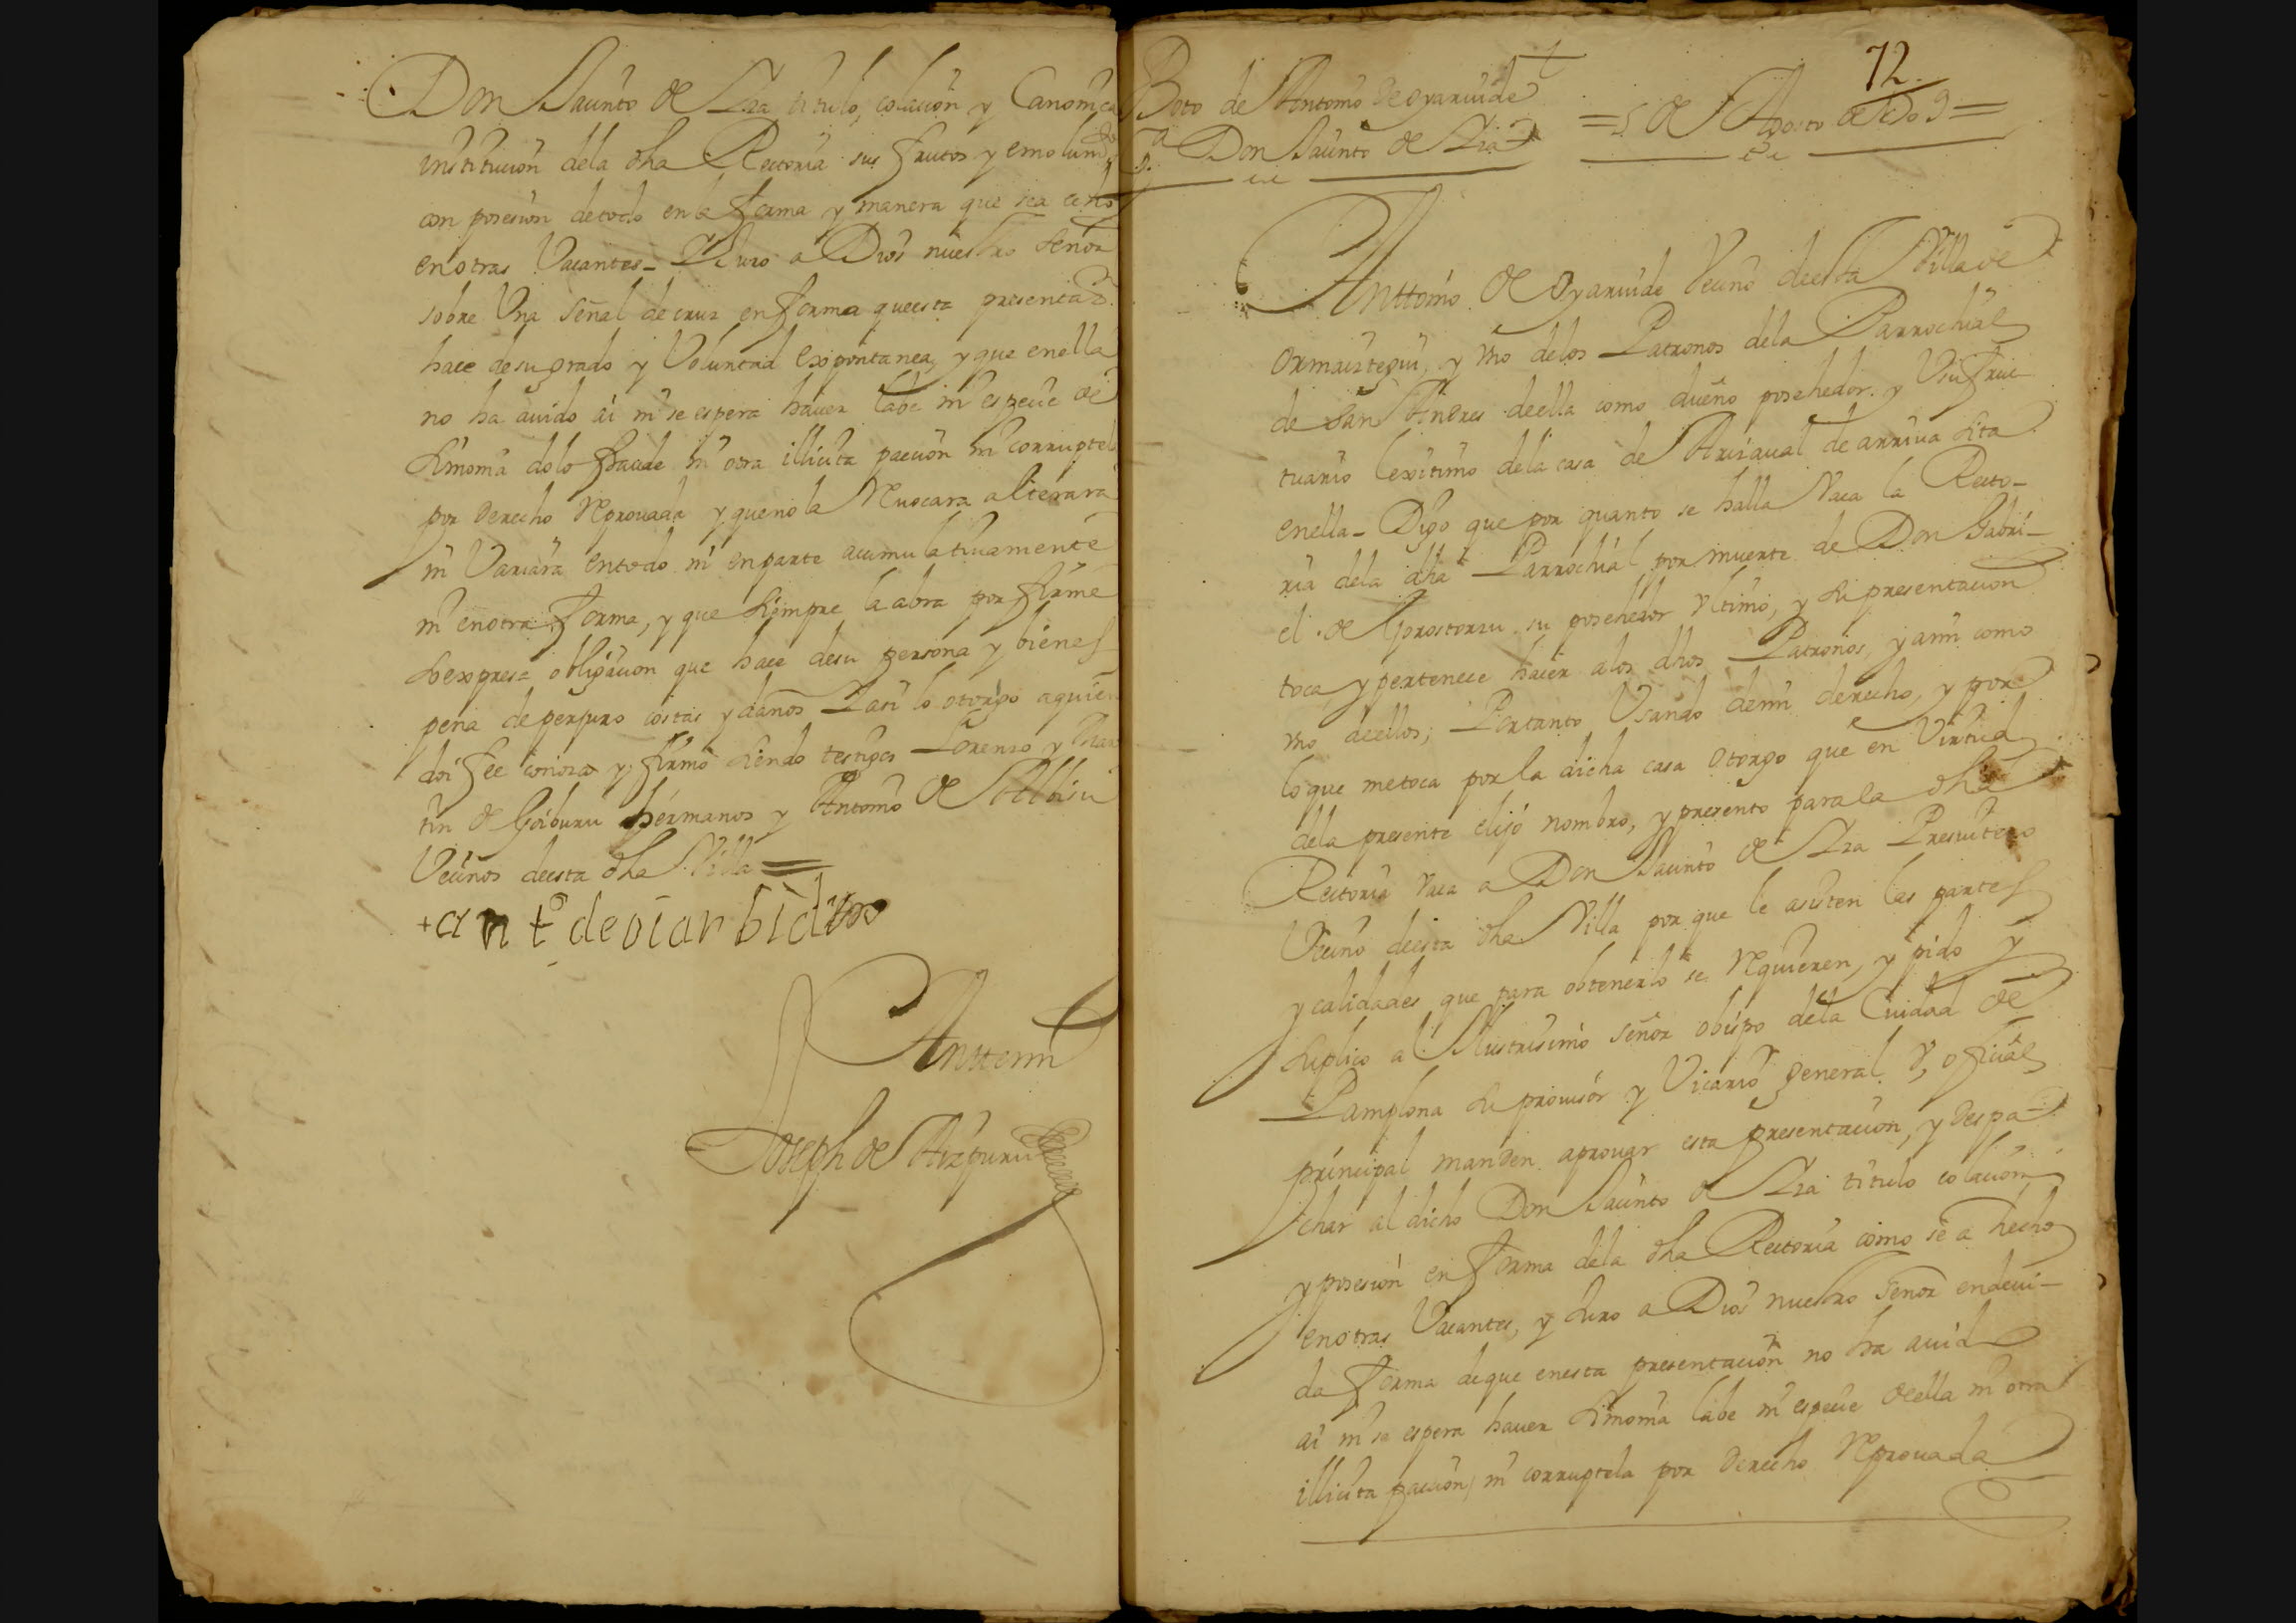 Don Jacinto de Iza titulo, colacion y Canonica
institucion dela dha Rectoria sus frutos y emolum.tos
con posesion de todo en la forma y manera que sea echo
en otras Vacantes_ Y Juro a Dios nuestro señor
sobre Una señal de cruz en forma que esta presentaz.on
hace de su grado y Voluntad expontanea, y que en ella
no ha auido ai ni se espera hauer labe ni especie de
simonia dolo fraude ni otra illicita paccion ni corruptela
por derecho Reprouada y que no la Reuocara alterara
ni Variara en todo ni en parte acumulatiuamente
ni en otra forma, y que siempre la abra por firme
so expresa obligacion que hace de su persona y bienes
pena de perjuro costas y daños Y asi lo otorgo a quien
doi fee conozco y firmó siendo testigos Lorenzo y Mar
tin de Goiburu hermanos y Antonio de Albisu
Vecinos de esta dha Villa =
+ant.o de oiarbide
Ante mi
Joseph de Aizpuru
72
Boto de Antonio de oyaruide
a Don Jacinto de Iza
= 5 de Agosto de 1709 =
Anttonio de Oyaruide Vecino de esta Villa de
Ormaiztegui, y Vno de los Patronos dela Parrochial
de San Andres de ella como dueño posehedor y Vsufruc
tuario lexitimo dela casa de Arizaual de arriua sita
en ella_ Digo que por quanto se halla Vaca la Recto-
ria dela dha Parrochial por muerte de Don Gabri-
el de Gorostorzu su posehedor Vltimo, y su presentacion
toca y pertenece hacer a los dhos Patronos, y a mi como
Vno de ellos; Portanto Vsando de mi derecho, y por
lo que me toca por la dicha casa otorgo que en Virtud
dela presente elijo nombro, y presento para la dha
Rectoria Vaca a Don Jacinto de Iza Presuitero
Vecino de esta dha Villa por que le asisten las partes
y calidades que para obtenerlo se Requieren, y pido y
suplico al Illustrisimo señor obispo dela Ciudad de
Pamplona su prouisor y Vicario general, y oficial
principal manden aprouar esta presentacion, y despa-
char al dicho Don Jacinto de Iza titulo colacion
y posesion en forma dela dha Rectoria como se a hecho
en otras Vacantes, y Juro a Dios nuestro señor en deui-
da forma de que en esta presentacion no ha auido
ai ni se espera hauer simonia labe ni especie de ella ni otra
illicita paccion, ni corruptela por derecho Reprouada